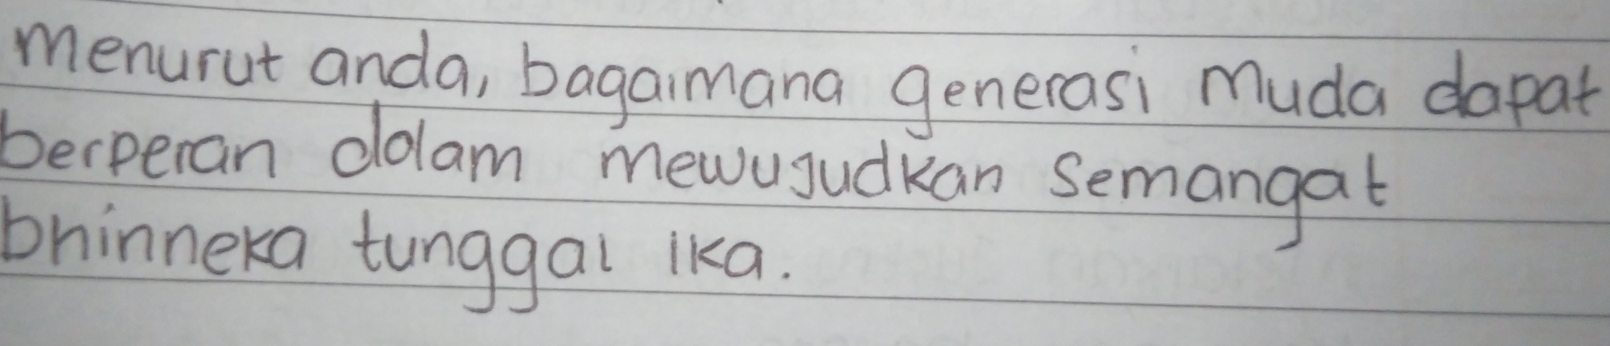 menurut anda, bagaimana generasi muda dapat
berperan dalam mewujudkan semangat
bhinneka tunggal ika.